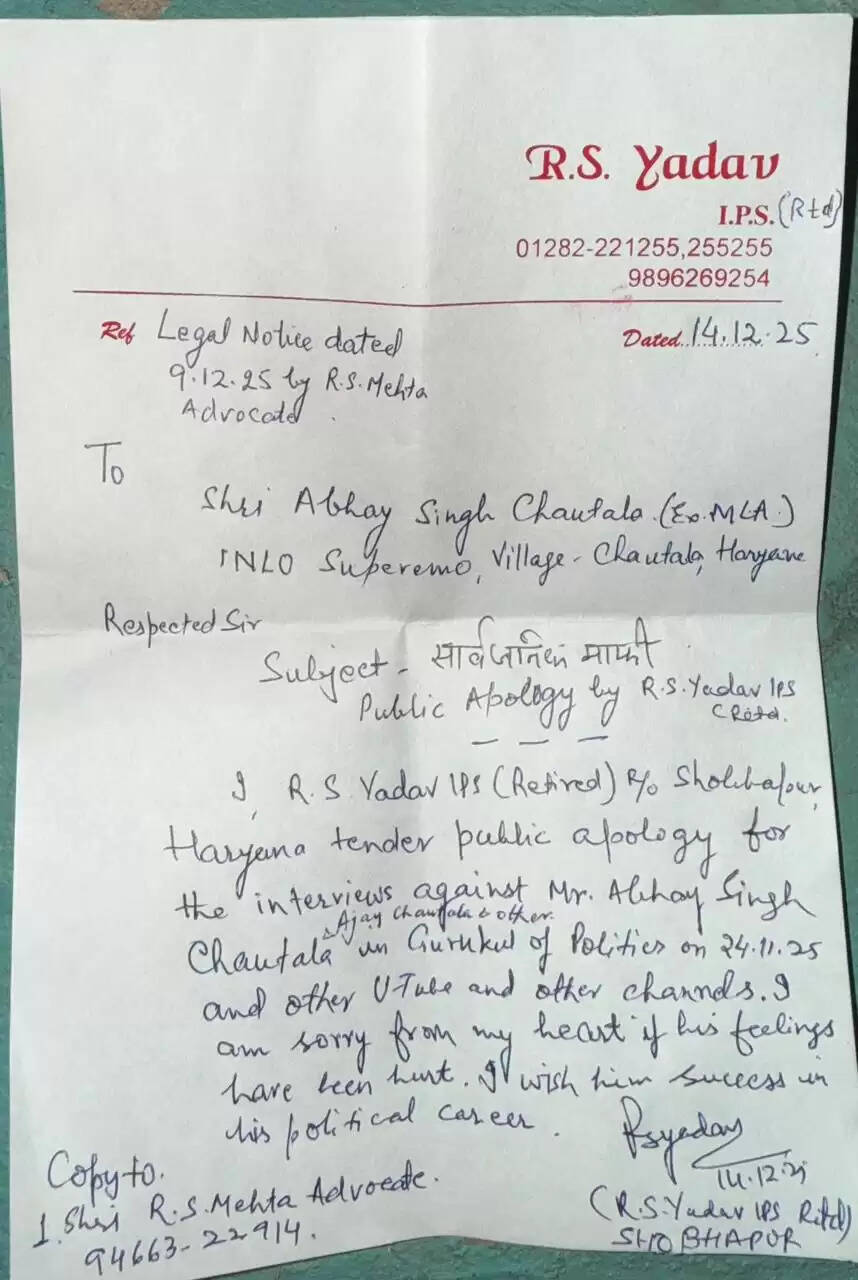 R.S. Yadav
I.P.S. (Rtd)
01282-221255,255255
9896269254
Ref Legal Notice dated
9.12.25 by R.S. Mehta
Advocate.
Dated. 14.12.25
To
Shri Abhay Singh Chautala. (Ex. MLA.)
INLO Superemo, Village - Chautala, Haryana
Respected Sir
Subject - सार्वजनिक माफी
Public Apology by R.S. Yadav IPS
(Retd.
I, R.S Yadav IPS (Retired) R/o Shobhapur,
Haryana tender public apology for
the interviews against Mr. Abhay Singh
Ajay Chautala & other.
Chautala in Gurukul of Politics on 24.11.25
and other U-Tube and other channels. I
am sorry from my heart if his feelings
have been hurt. I wish him success in
his political career.
Rsyadav
14.12.25
Copy to.
1. Shri R.S. Mehta Advocate.
94663-22914.
(R.S. Yadav IPS Retd)
SHOBHAPUR